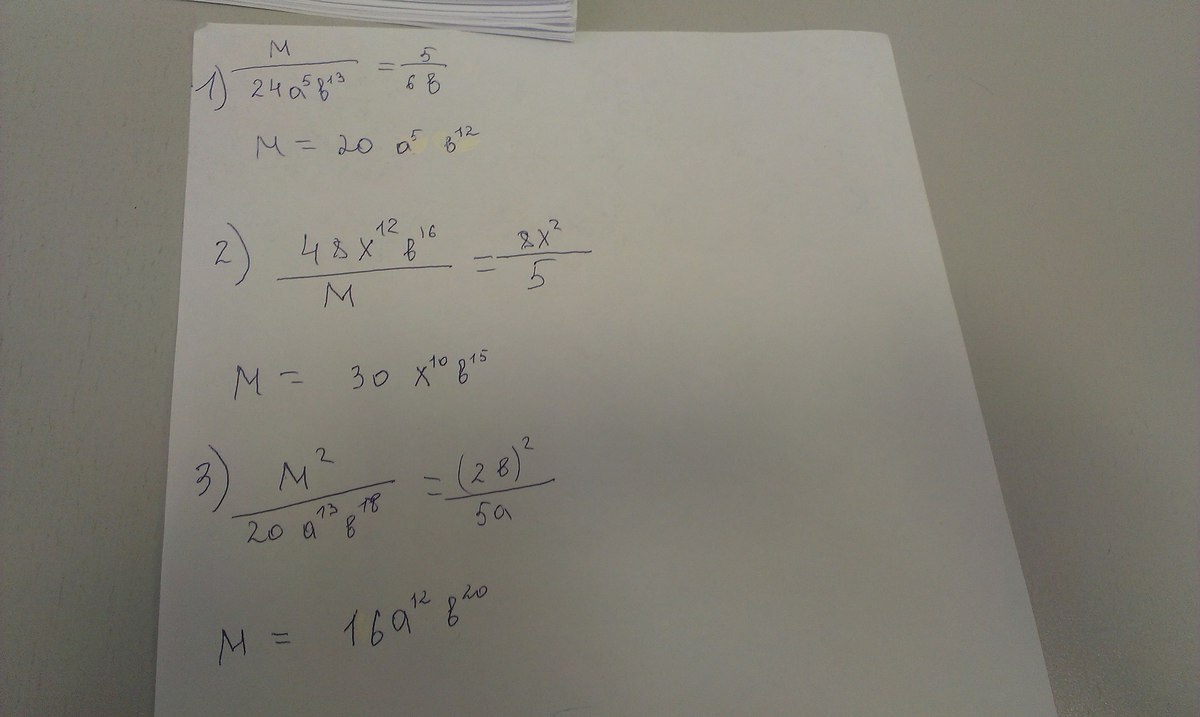 1) M / 24a⁵в¹³ = 5 / 6в
M = 20 a⁵ в¹²
2) 48x¹²в¹⁶ / M = 8x² / 5
M = 30 x¹⁰ в¹⁵
3) M² / 20 a¹³ в¹⁸ = (2в)² / 5a
M = 16a¹² в²⁰